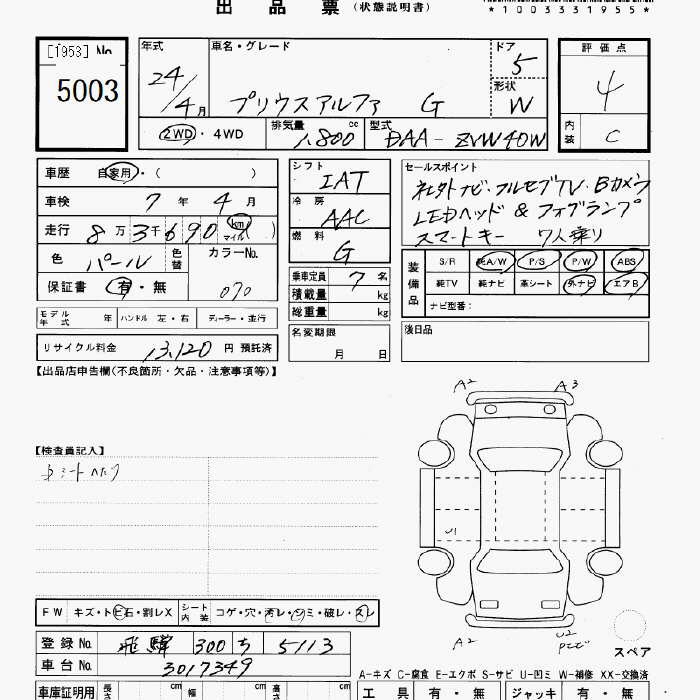 出品票（状態説明書）
*1003331955*
[1953] No.
5003
年式 24/4月
車名・グレード プリウスアルファ G
ドア 5
形状 W
2WD・4WD 排気量 1,800 cc 型式 DAA-ZVW40W
評価点 4
内装 C
車歴 自家用・( )
車検 7年 4月
走行 8万3千690 km マイル ( )
色 パール 色替 カラーNo. 070
保証書 有・無
モデル年式 年 ハンドル 左・右 ディーラー・並行
リサイクル料金 13,120 円 預託済
シフト IAT
冷房 AAC
燃料 G
乗車定員 7 名
積載量 kg
総重量 kg
名変期限 月 日
セールスポイント
社外ナビ・フルセグTV・Bカメラ
LEDヘッド & フォグランプ
スマートキー 7人乗り
装備品 S/R 純A/W P/S P/W ABS
純TV 純ナビ 革シート 外ナビ エアB
ナビ型番：
後日品
【出品店申告欄(不良箇所・欠品・注意事項等)】
A2 A3
【検査員記入】
シートヘタリ
U1
A2 U2
スペア
FW キズ・トビ石・割レX シート内装 コゲ・穴・汚レ・シミ・破レ・スレ
登録No. 飛騨 300 ち 5113
車台No. 3017349
A-キズ C-腐食 E-エクボ S-サビ U-凹ミ W-補修 XX-交換済
車庫証明用 長さ cm 幅 cm 高さ cm
工具 有・無 ジャッキ 有・無